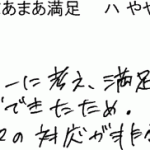 あまあ満足 ハ やや
ーに考え、満足
できたため。
の対応がまだ